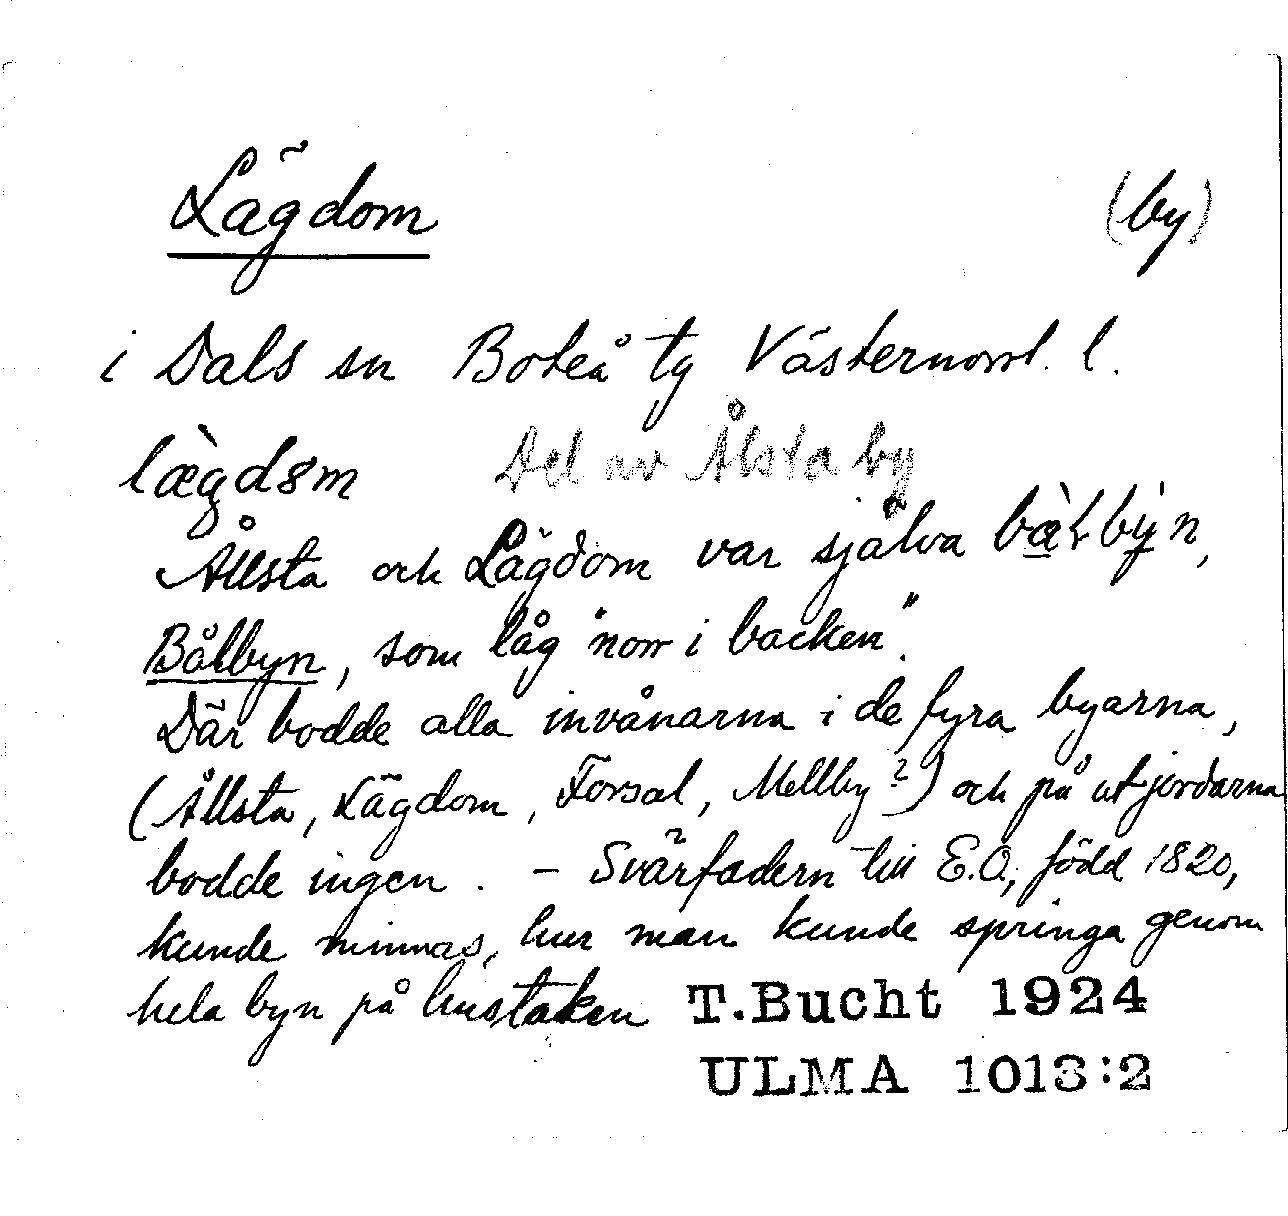 Lägdom (by)
i Dals sn Boteå tg Västernorrl. l.
lægdɵm Del av Ålsta by
Ållsta och Lägdom var själva
Bålbyn, som låg "norr i backen".
Där bodde alla invånarna i de fyra byarna,
(Ållsta, Lägdom, Forsal, Mellby?) och på utjordarna
bodde ingen. – Svärfadern till E.O., född 1820,
kunde minnas, hur man kunde springa genom
hela byn på hustaken T.Bucht 1924
ULMA 1013:2